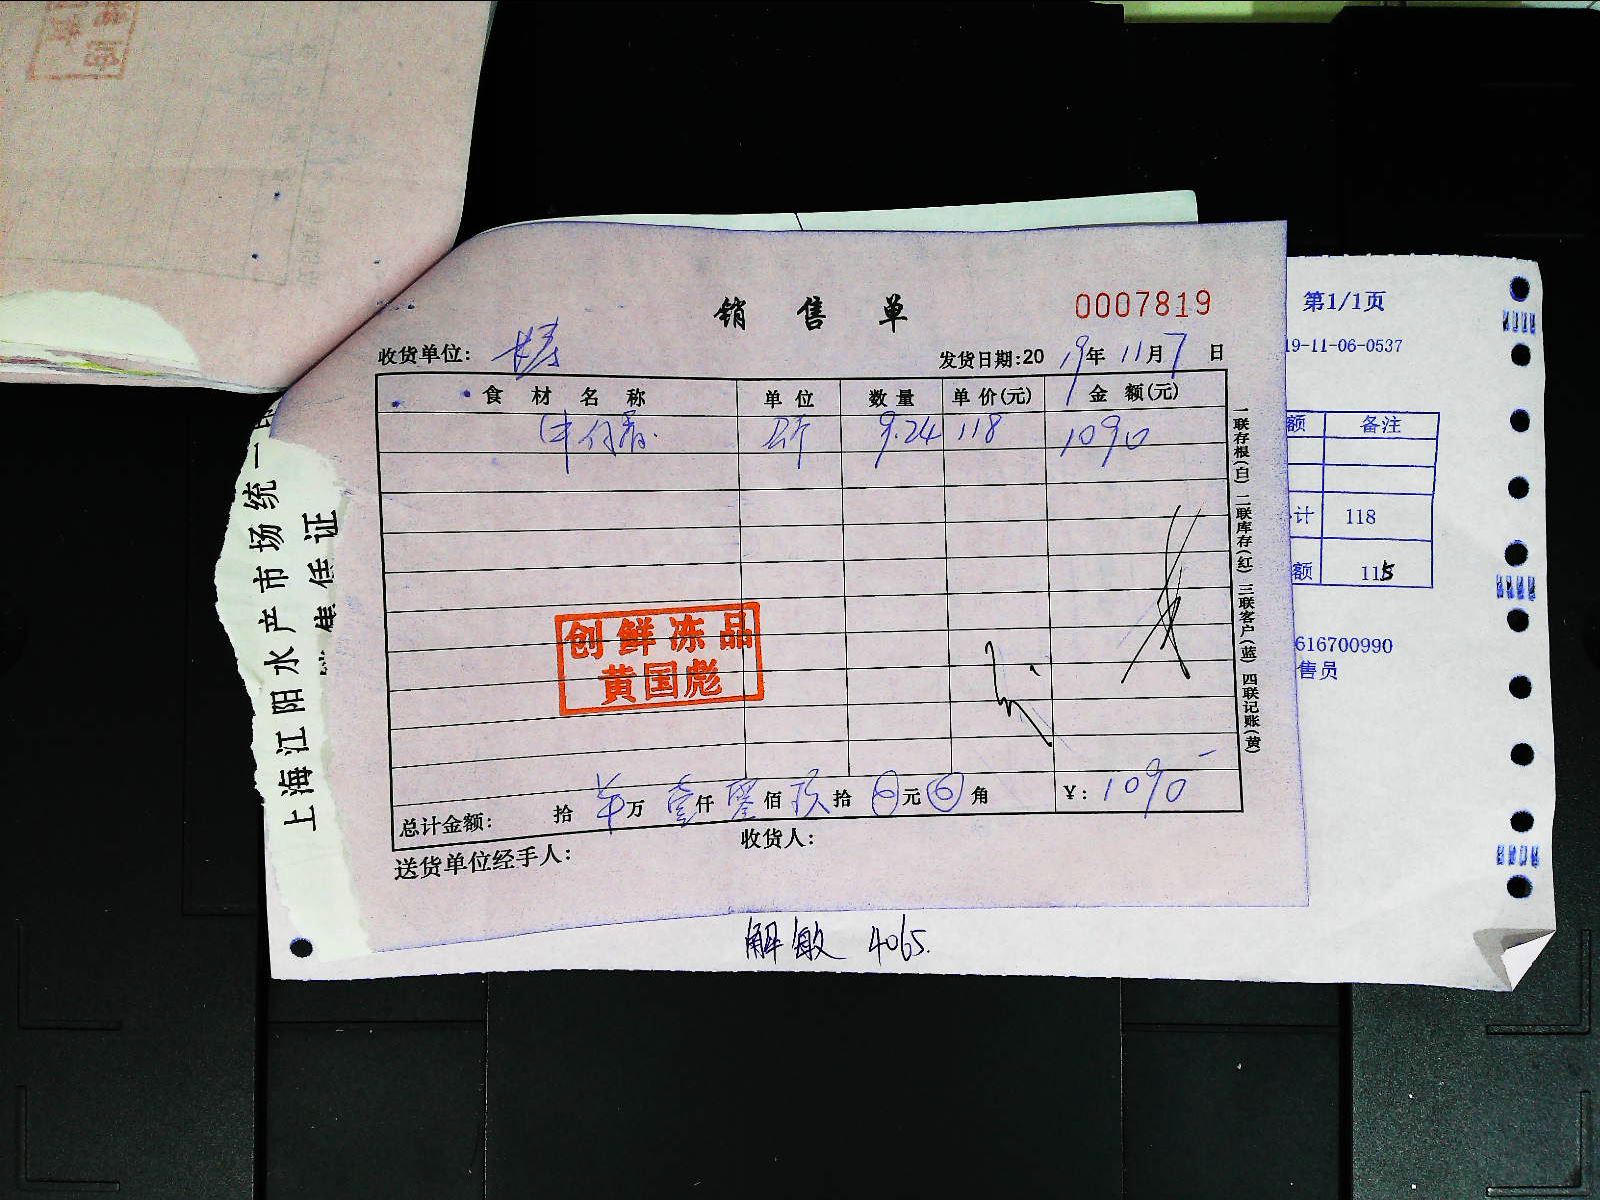 销售单 0007819
收货单位: 发货日期:2019年11月7日
食材名称 单位 数量 单价(元) 金额(元)
斤 9.24 118 1090
创鲜冻品
黄国彪
总计金额: 拾 万 壹仟 零佰 玖拾 元 角 ¥: 1090
送货单位经手人: 收货人:
一联存根(白) 二联库存(红) 三联客户(蓝) 四联记账(黄)
上海江阳水产市场统一
任证
第1/1页
19-11-06-0537
额 备注
计 118
额 115
616700990
售员
解敏 4065.